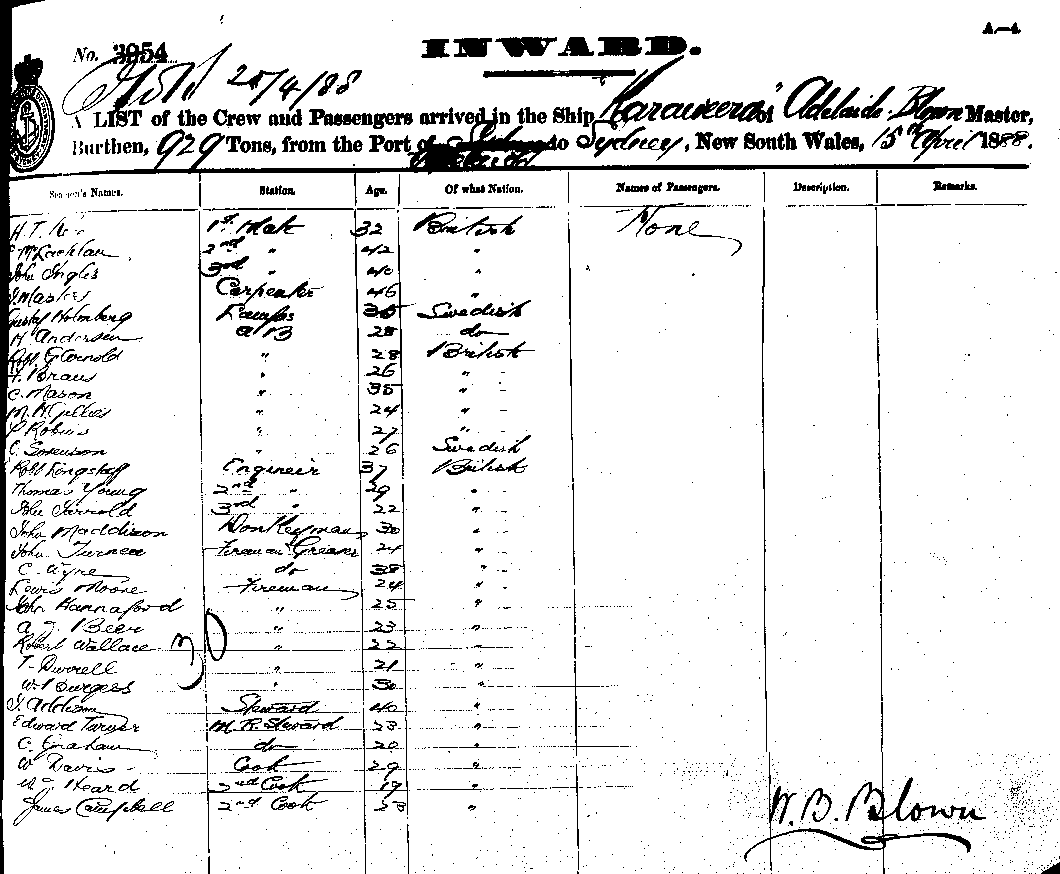 A.—4.
INWARD.
No. 3954
25/4/88
A LIST of the Crew and Passengers arrived in the Ship Karaweera of Adelaide. Blown Master,
Burthen, 929 Tons, from the Port of to Sydney, New South Wales, 15th April 1888.
Seamen's Names. Station. Age. Of what Nation. Names of Passengers. Description. Remarks.
H. T. 1st Mate 32 British None
McLachlan 2nd " 42 "
John Inglis 3rd " 40 "
J. Masters Carpenter 46 "
Gustaf Holmberg Lamps 35 Swedish
H. Andersen AB 28 do
Robt G Arnold " 28 British
Braus " 26 " -
C. Mason " 35 " -
M. McGillies " 24 " -
P Robins " 27 " -
C. Sorenson " 26 Swedish
Robt Longstaff Engineer 37 British
Thomas Young 2nd " 29 "
John Jerrold 3rd " 22 "
John Maddison Donkeyman 30 "
John Turner Fireman Greaser 24 "
C. Wyre do 38 "
Lewis Moore Fireman 24 "
John Hannaford " 25 "
A. J. Beer " 23 "
Robert Wallace " 22 "
30
T. Durrell " 21 "
W. Burgess " 30 "
J. Addison Steward 40 "
Edward Turner M. R. Steward 23 "
C. Graham do 20 "
W Davis Cook 29 "
Wm Heard 2nd Cook 19 "
James Campbell 2nd Cook 23 "
W. B. Blown